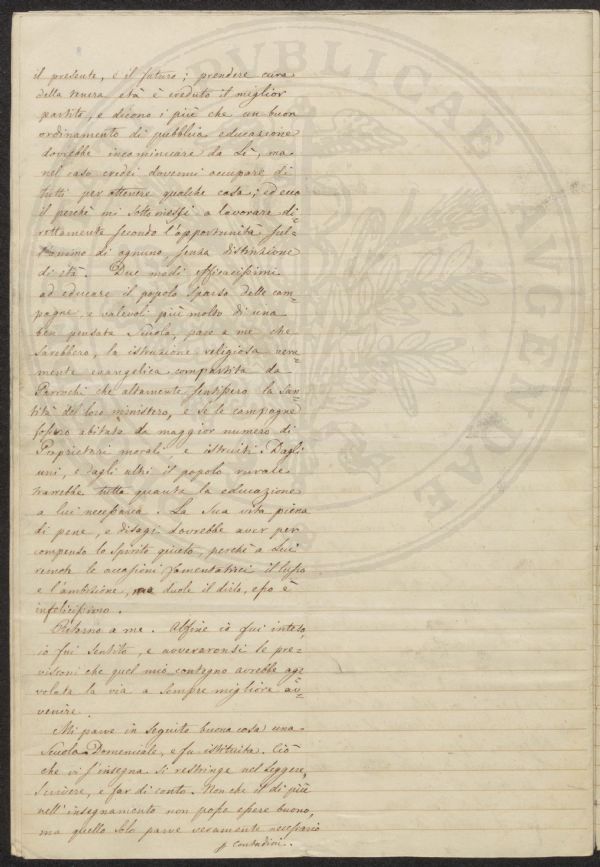 il presente, e il futuro; prendere cura
della tenera età è creduto il miglior
partito, e dicono i più che un buon
ordinamento di pubblica educazione
dovrebbe incominciare da Lì, ma
nel caso credei dovermi occupare di
tutti per ottenere qualche cosa; ed ecco
il perchè mi sottomessi a lavorare di=
rettamente secondo l'opportunità sul=
l'animo di ognuno senza distinzione
di età. Due modi efficacissimi
ad educare il popolo sparso delle cam=
pagne, e valevoli più molto di una
ben pensata Scuola, pare a me che
sarebbero, la istruzione religiosa vera=
mente evangelica compartita da
Parrochi che altamente sentissero la San=
tità del loro ministero, e se le campagne
fossero abitate da maggior numero di
Proprietari morali, e istruiti. Dagli
uni, e dagli altri il popolo rurale
trarrebbe tutta quanta la educazione
a lui necessaria. La Sua vita piena
di pene, e disagi dovrebbe aver per
compenso lo Spirito quieto, perchè a Lui
remote le occasioni fomentatrici il lusso
e l'ambizione, ma duole il dirlo, esso è
infelicissimo.
Ritorno a me. Alfine io fui inteso,
io fui Sentito, e avveraronsi le pre=
visioni che quel mio contegno avrebbe age=
volata la via a sempre migliore av=
venire.
Mi parve in seguito buona cosa una
Scuola Domenicale, e fu istituita. Ciò
che vi s'insegna si restringe nel Leggere,
Scrivere, e far di conto. Non che il di più
nell'insegnamento non possa essere buono,
ma quello Solo parve veramente necessario
p contadini.
PUBLICAE
AUGENDAE